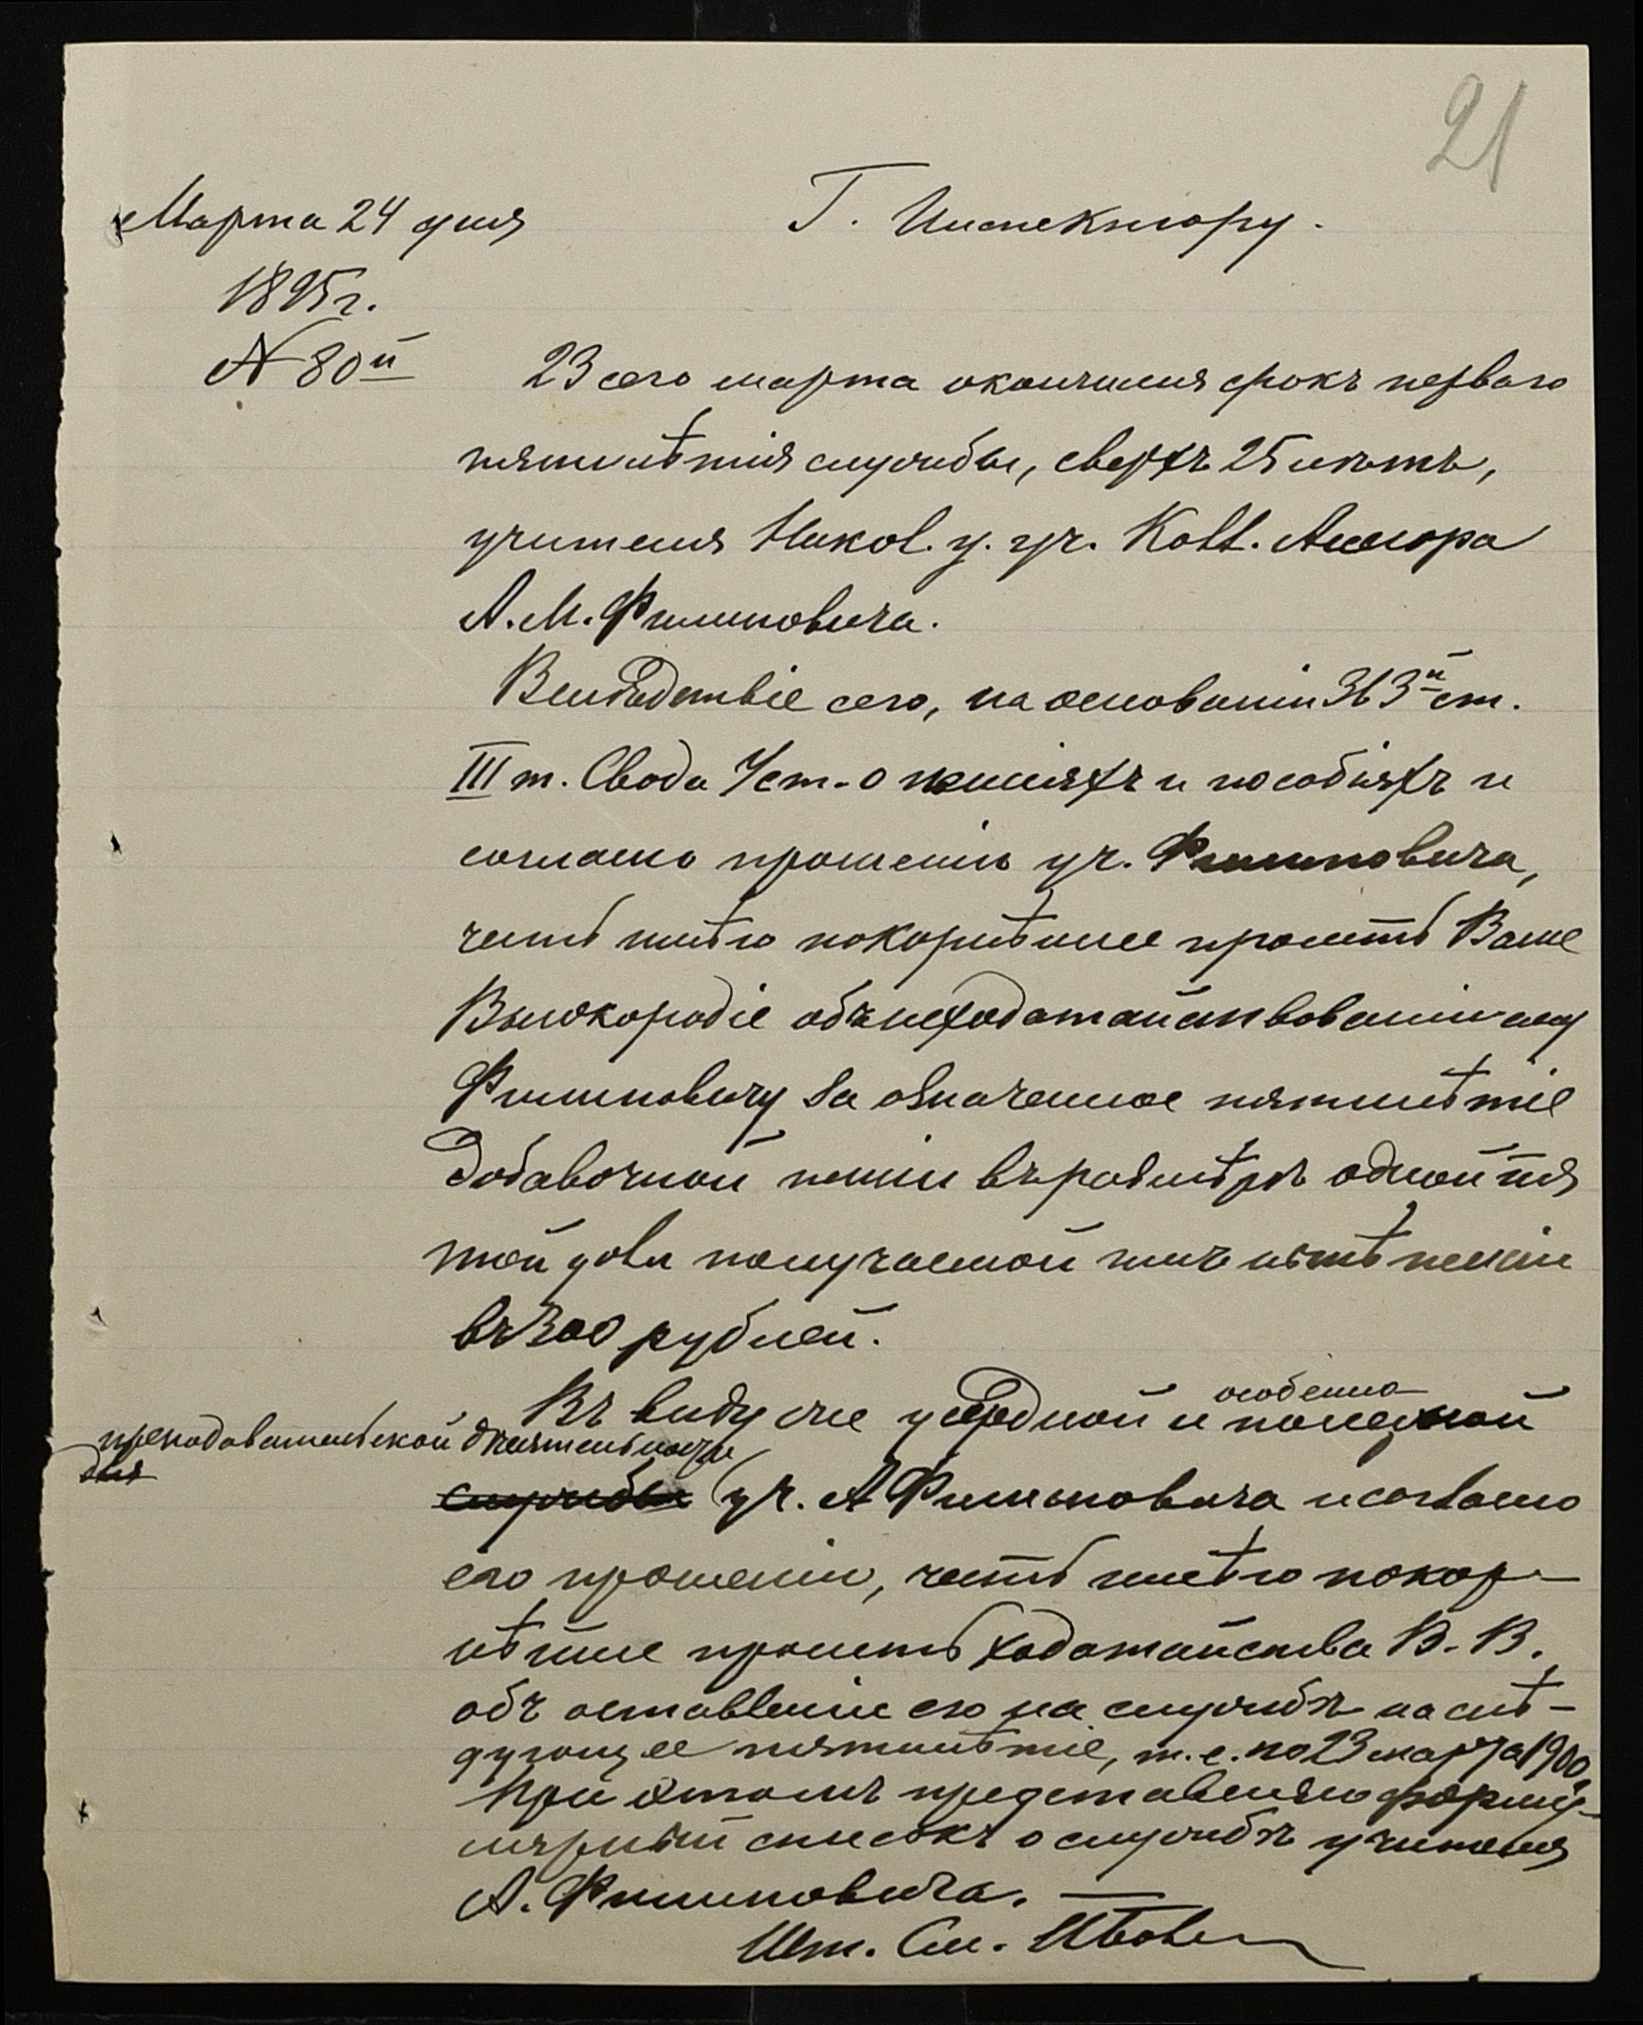 21
Марта 24 дня
1895 г.
№ 80й
Г. Инспектору.
23 сего марта окончился срокъ перваго
пятилѣтія службы, сверхъ 25 лѣтъ,
учителя Никол. у. уч. Колл. Асессора
А. М. Филиповича.
Вслѣдствіе сего, на основаніи 363й ст.
III т. Свода Уст. о пенсіяхъ и пособіяхъ и
согласно прошенію уч. Филиповича,
честь имѣю покорнѣйше просить Ваше
Высокородіе объ исходатайствованіи ему
Филиповичу за означенное пятилѣтіе
добавочной пенсіи въ размѣрѣ одной пя
той доли получаемой имъ пенсіи
въ 300 рублей.
Въ виду усердной и особенно полезной
преподавательской дѣятельности
службы уч. А Филиповича и согласно
его прошенію, честь имѣю покор-
нѣйше просить ходатайства В. В.
объ оставленіи его на службѣ на слѣ-
дующее пятилѣтіе, т. е. по 23 марта 1900.
При этомъ представляю форму-
лярный списокъ о службѣ учителя
А. Филиповича. —
Шт. См.